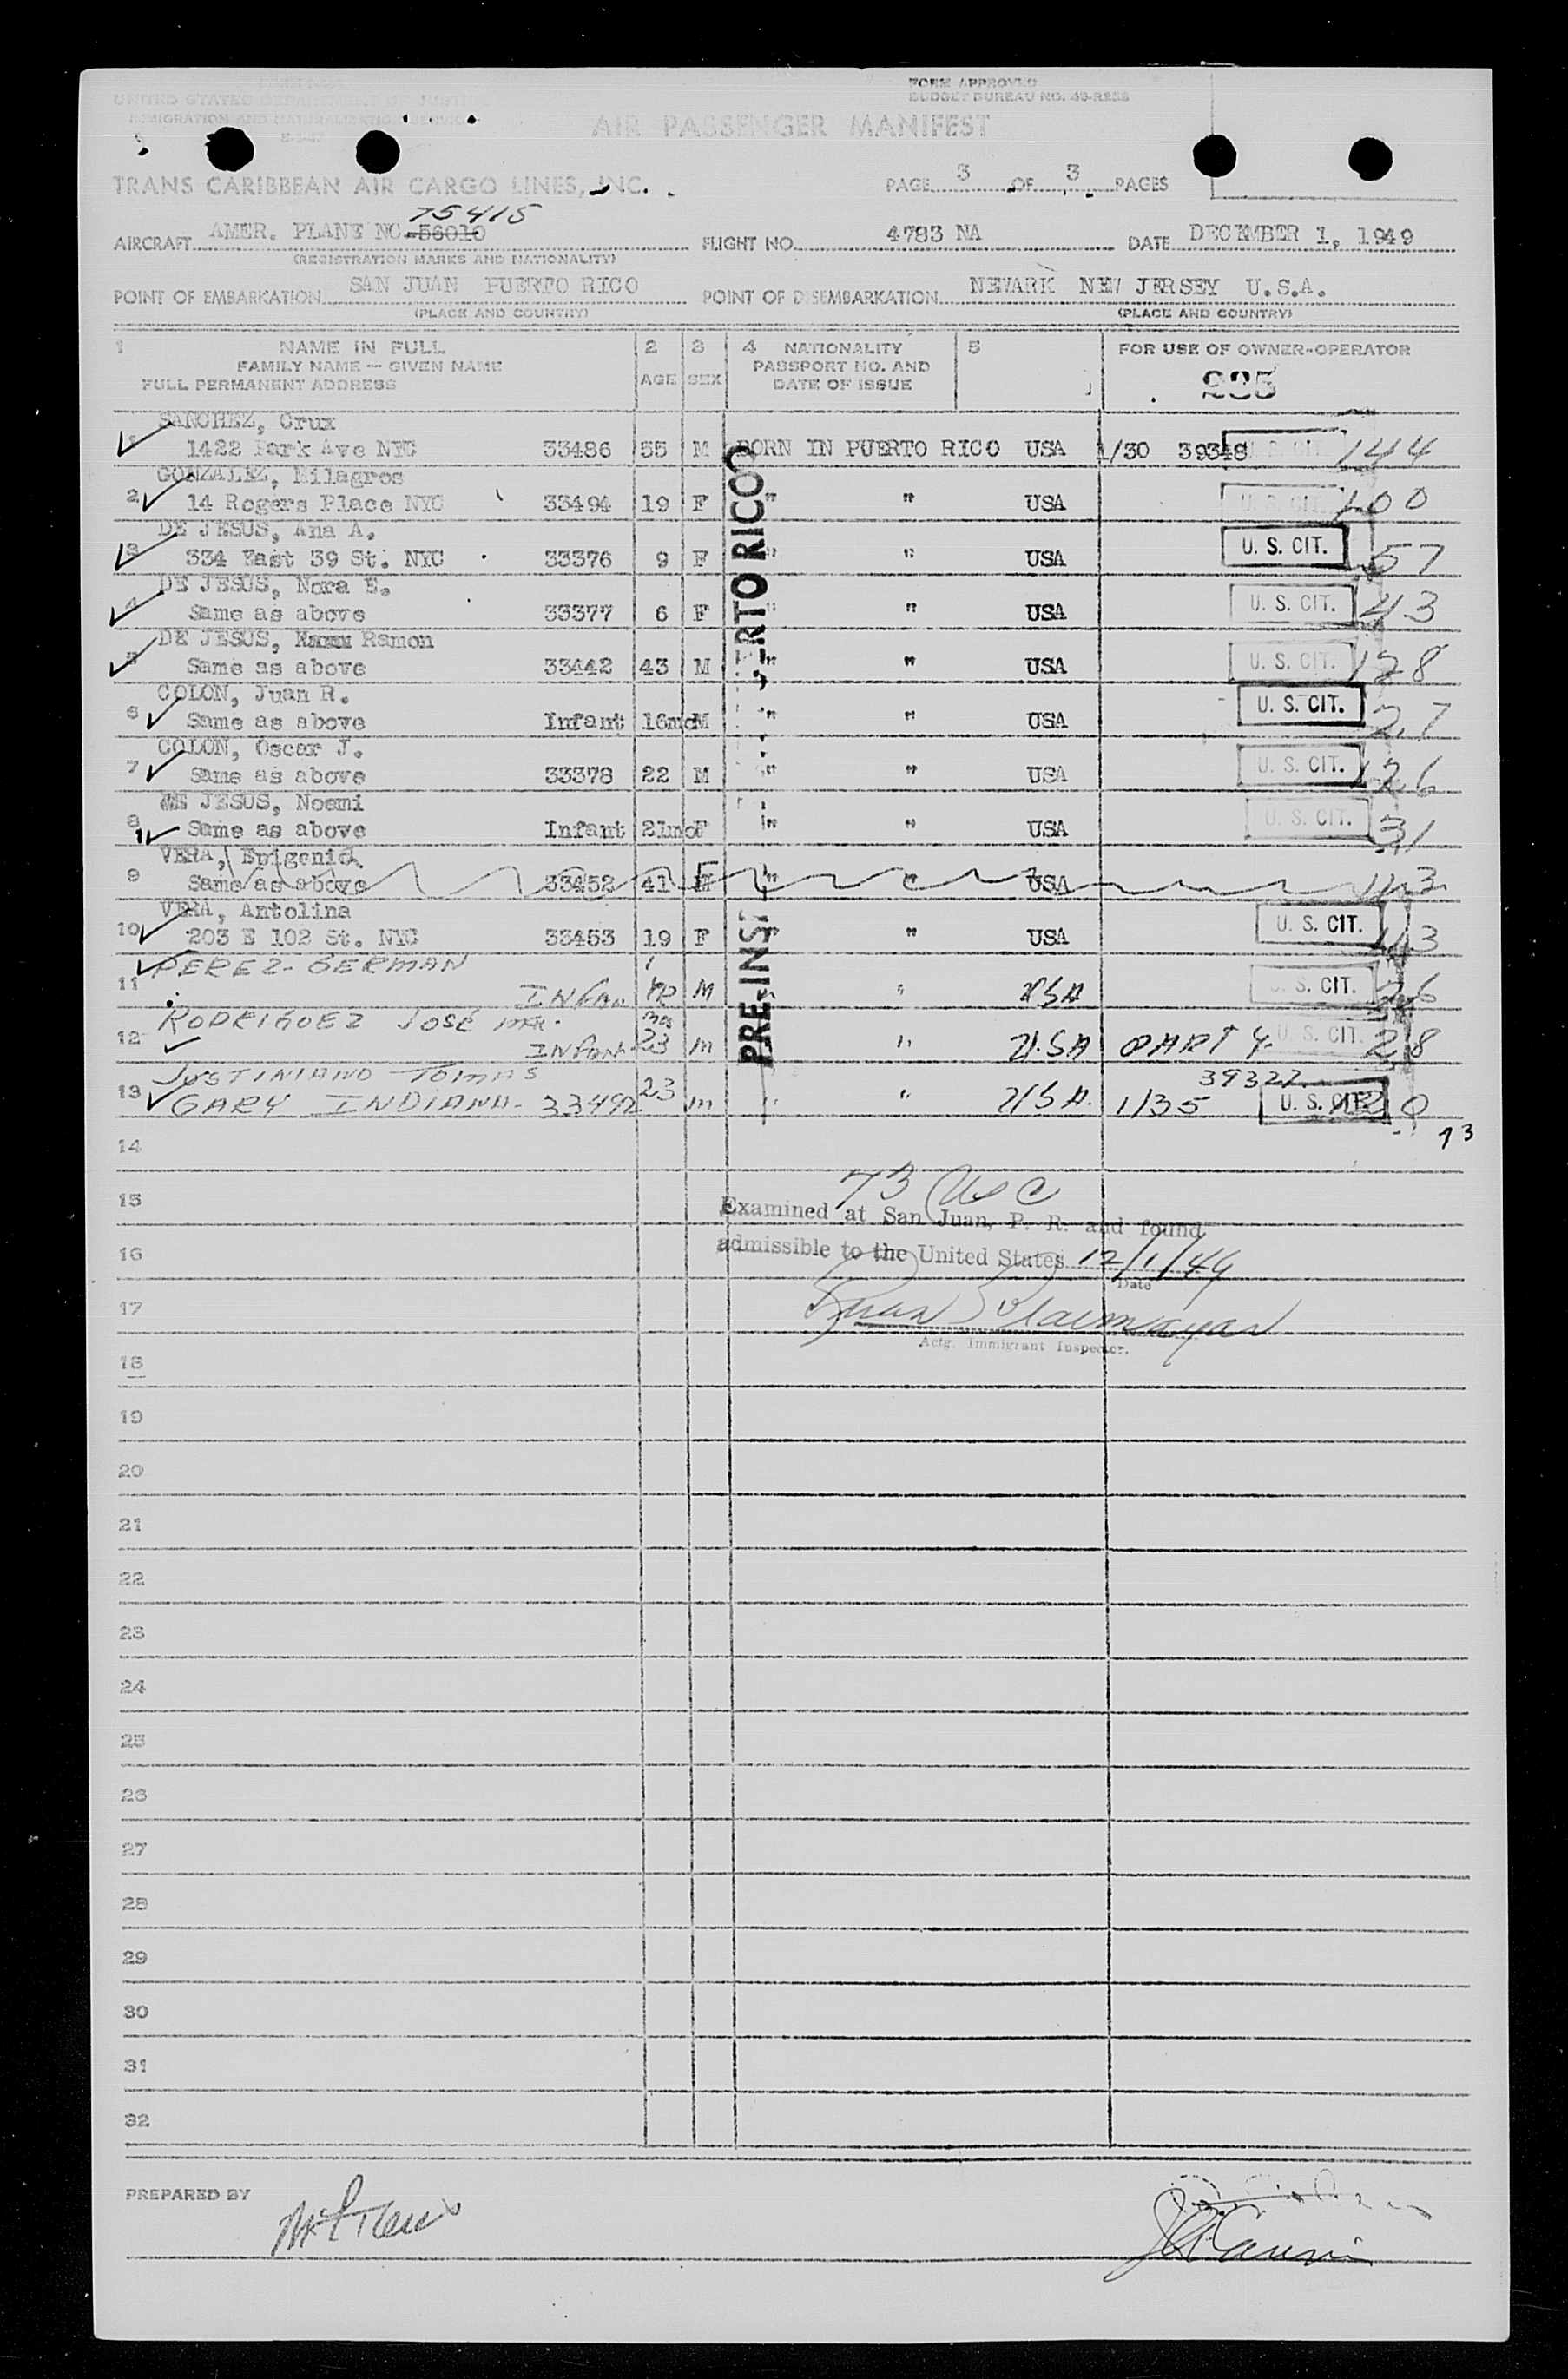 UNITED STATES DEPARTMENT OF JUSTICE
IMMIGRATION AND NATURALIZATION SERVICE
FORM APPROVED
BUDGET BUREAU NO. 43-R253
AIR PASSENGER MANIFEST
TRANS CARIBBEAN AIR CARGO LINES, INC.
PAGE 3 OF 3 PAGES
75415
AIRCRAFT AMER. PLANE NC 56010 FLIGHT NO. 4783 NA DATE DECEMBER 1, 1949
(REGISTRATION MARKS AND NATIONALITY)
POINT OF EMBARKATION SAN JUAN PUERTO RICO POINT OF DISEMBARKATION NEWARK NEW JERSEY U.S.A.
(PLACE AND COUNTRY) (PLACE AND COUNTRY)
1 NAME IN FULL 2 3 4 NATIONALITY 5 FOR USE OF OWNER-OPERATOR
FAMILY NAME — GIVEN NAME PASSPORT NO. AND
FULL PERMANENT ADDRESS AGE SEX DATE OF ISSUE 225
SANCHEZ, Crux
1 1422 Park Ave NYC 33486 55 M BORN IN PUERTO RICO USA 1/30 39348 U. S. CIT. 144
GONZALEZ, Milagros
2 14 Rogers Place NYC 33494 19 F " " USA U. S. CIT. 100
DE JESUS, Ana A.
3 334 East 39 St. NYC 33376 9 F " " USA U. S. CIT. 57
DE JESUS, Nora E.
4 Same as above 33377 6 F " " USA U. S. CIT. 43
DE JESUS, Ramon
5 Same as above 33442 43 M " " USA U. S. CIT. 128
COLON, Juan R.
6 Same as above Infant 16mo M " " USA U. S. CIT. 27
COLON, Oscar J.
7 Same as above 33378 22 M " " USA U. S. CIT. 126
DE JESUS, Noemi
8 Same as above Infant 21mo F " " USA U. S. CIT. 31
VERA, Epigenia
9 Same as above 33452 41 F " " USA 113
VERA, Antolina
10 203 E 102 St. NYC 33453 19 F " " USA U. S. CIT. 113
PEREZ - GERMAN
11 INFAN M " USA U. S. CIT. 26
RODRIGUEZ JOSÉ mos
12 INFANT 23 M " U.S.A PART Y. U. S. CIT. 28
JUSTINIANO TOMAS 39322
13 GARY INDIANA - 33492 23 m " " USA. 1/35 U. S. CIT.
73
PRE-INSP PUERTO RICO
14
15
73 USC
Examined at San Juan, P. R. and found
16
admissible to the United States 12/1/49
Date
17
Actg. Immigrant Inspector.
18
19
20
21
22
23
24
25
26
27
28
29
30
31
32
PREPARED BY